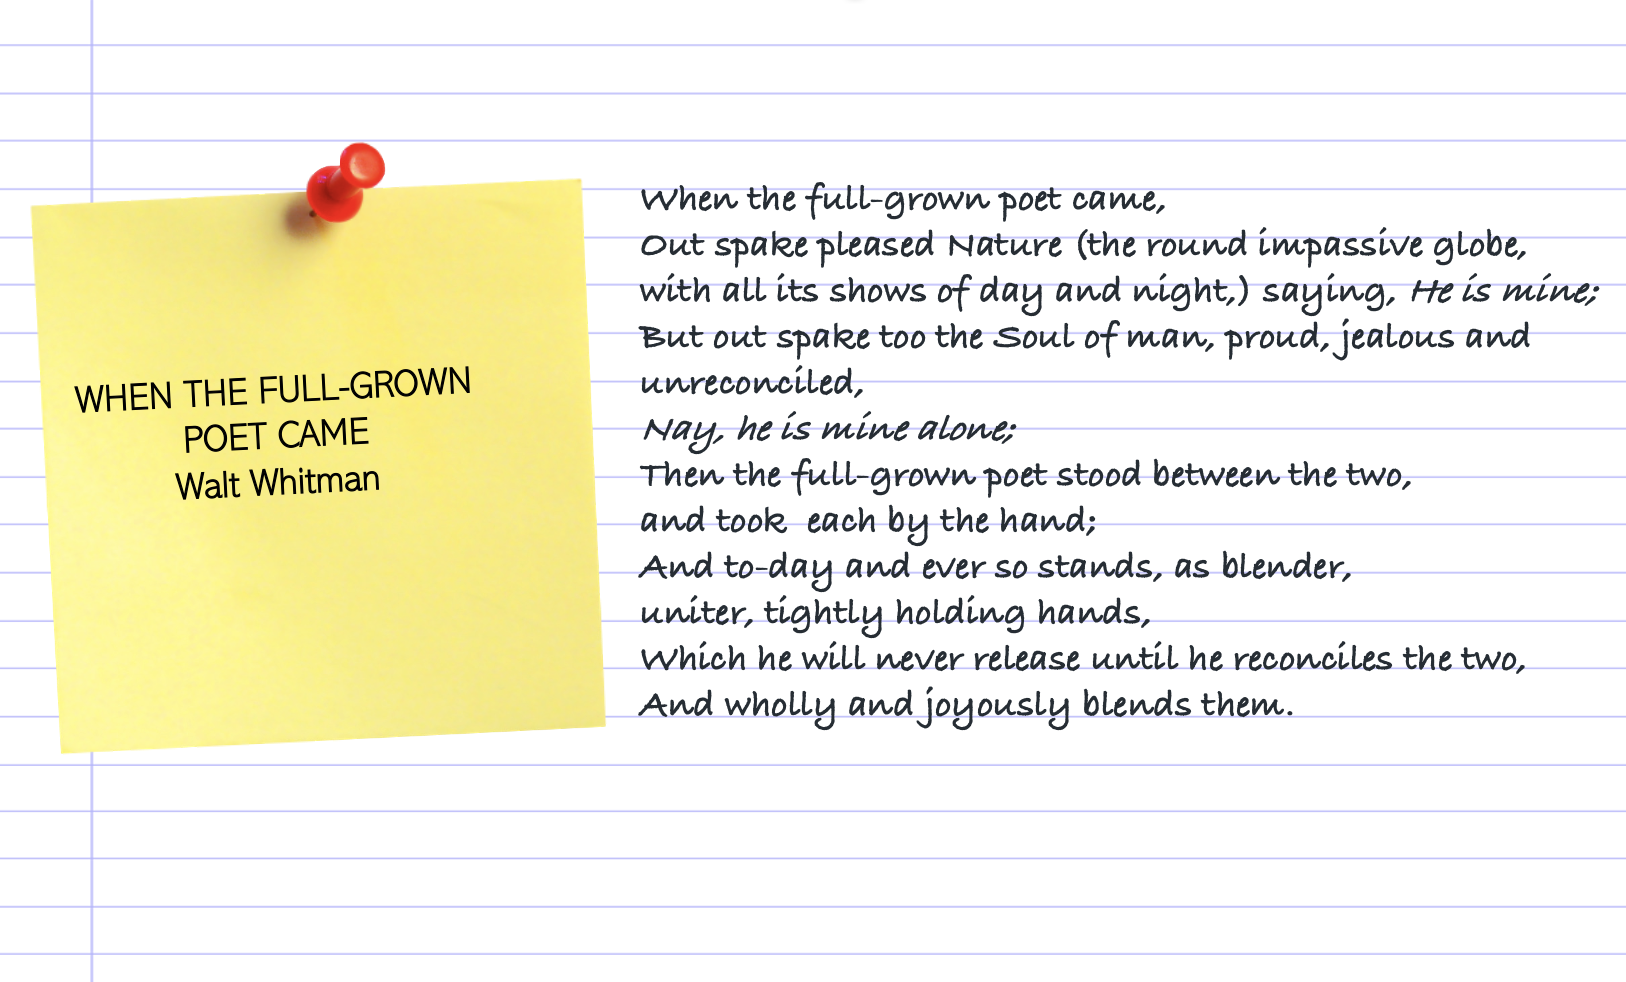 WHEN THE FULL-GROWN
POET CAME
Walt Whitman
When the full-grown poet came,
Out spake pleased Nature (the round impassive globe,
with all its shows of day and night,) saying, He is mine;
But out spake too the Soul of man, proud, jealous and
unreconciled,
Nay, he is mine alone;
Then the full-grown poet stood between the two,
and took  each by the hand;
And to-day and ever so stands, as blender,
uniter, tightly holding hands,
Which he will never release until he reconciles the two,
And wholly and joyously blends them.